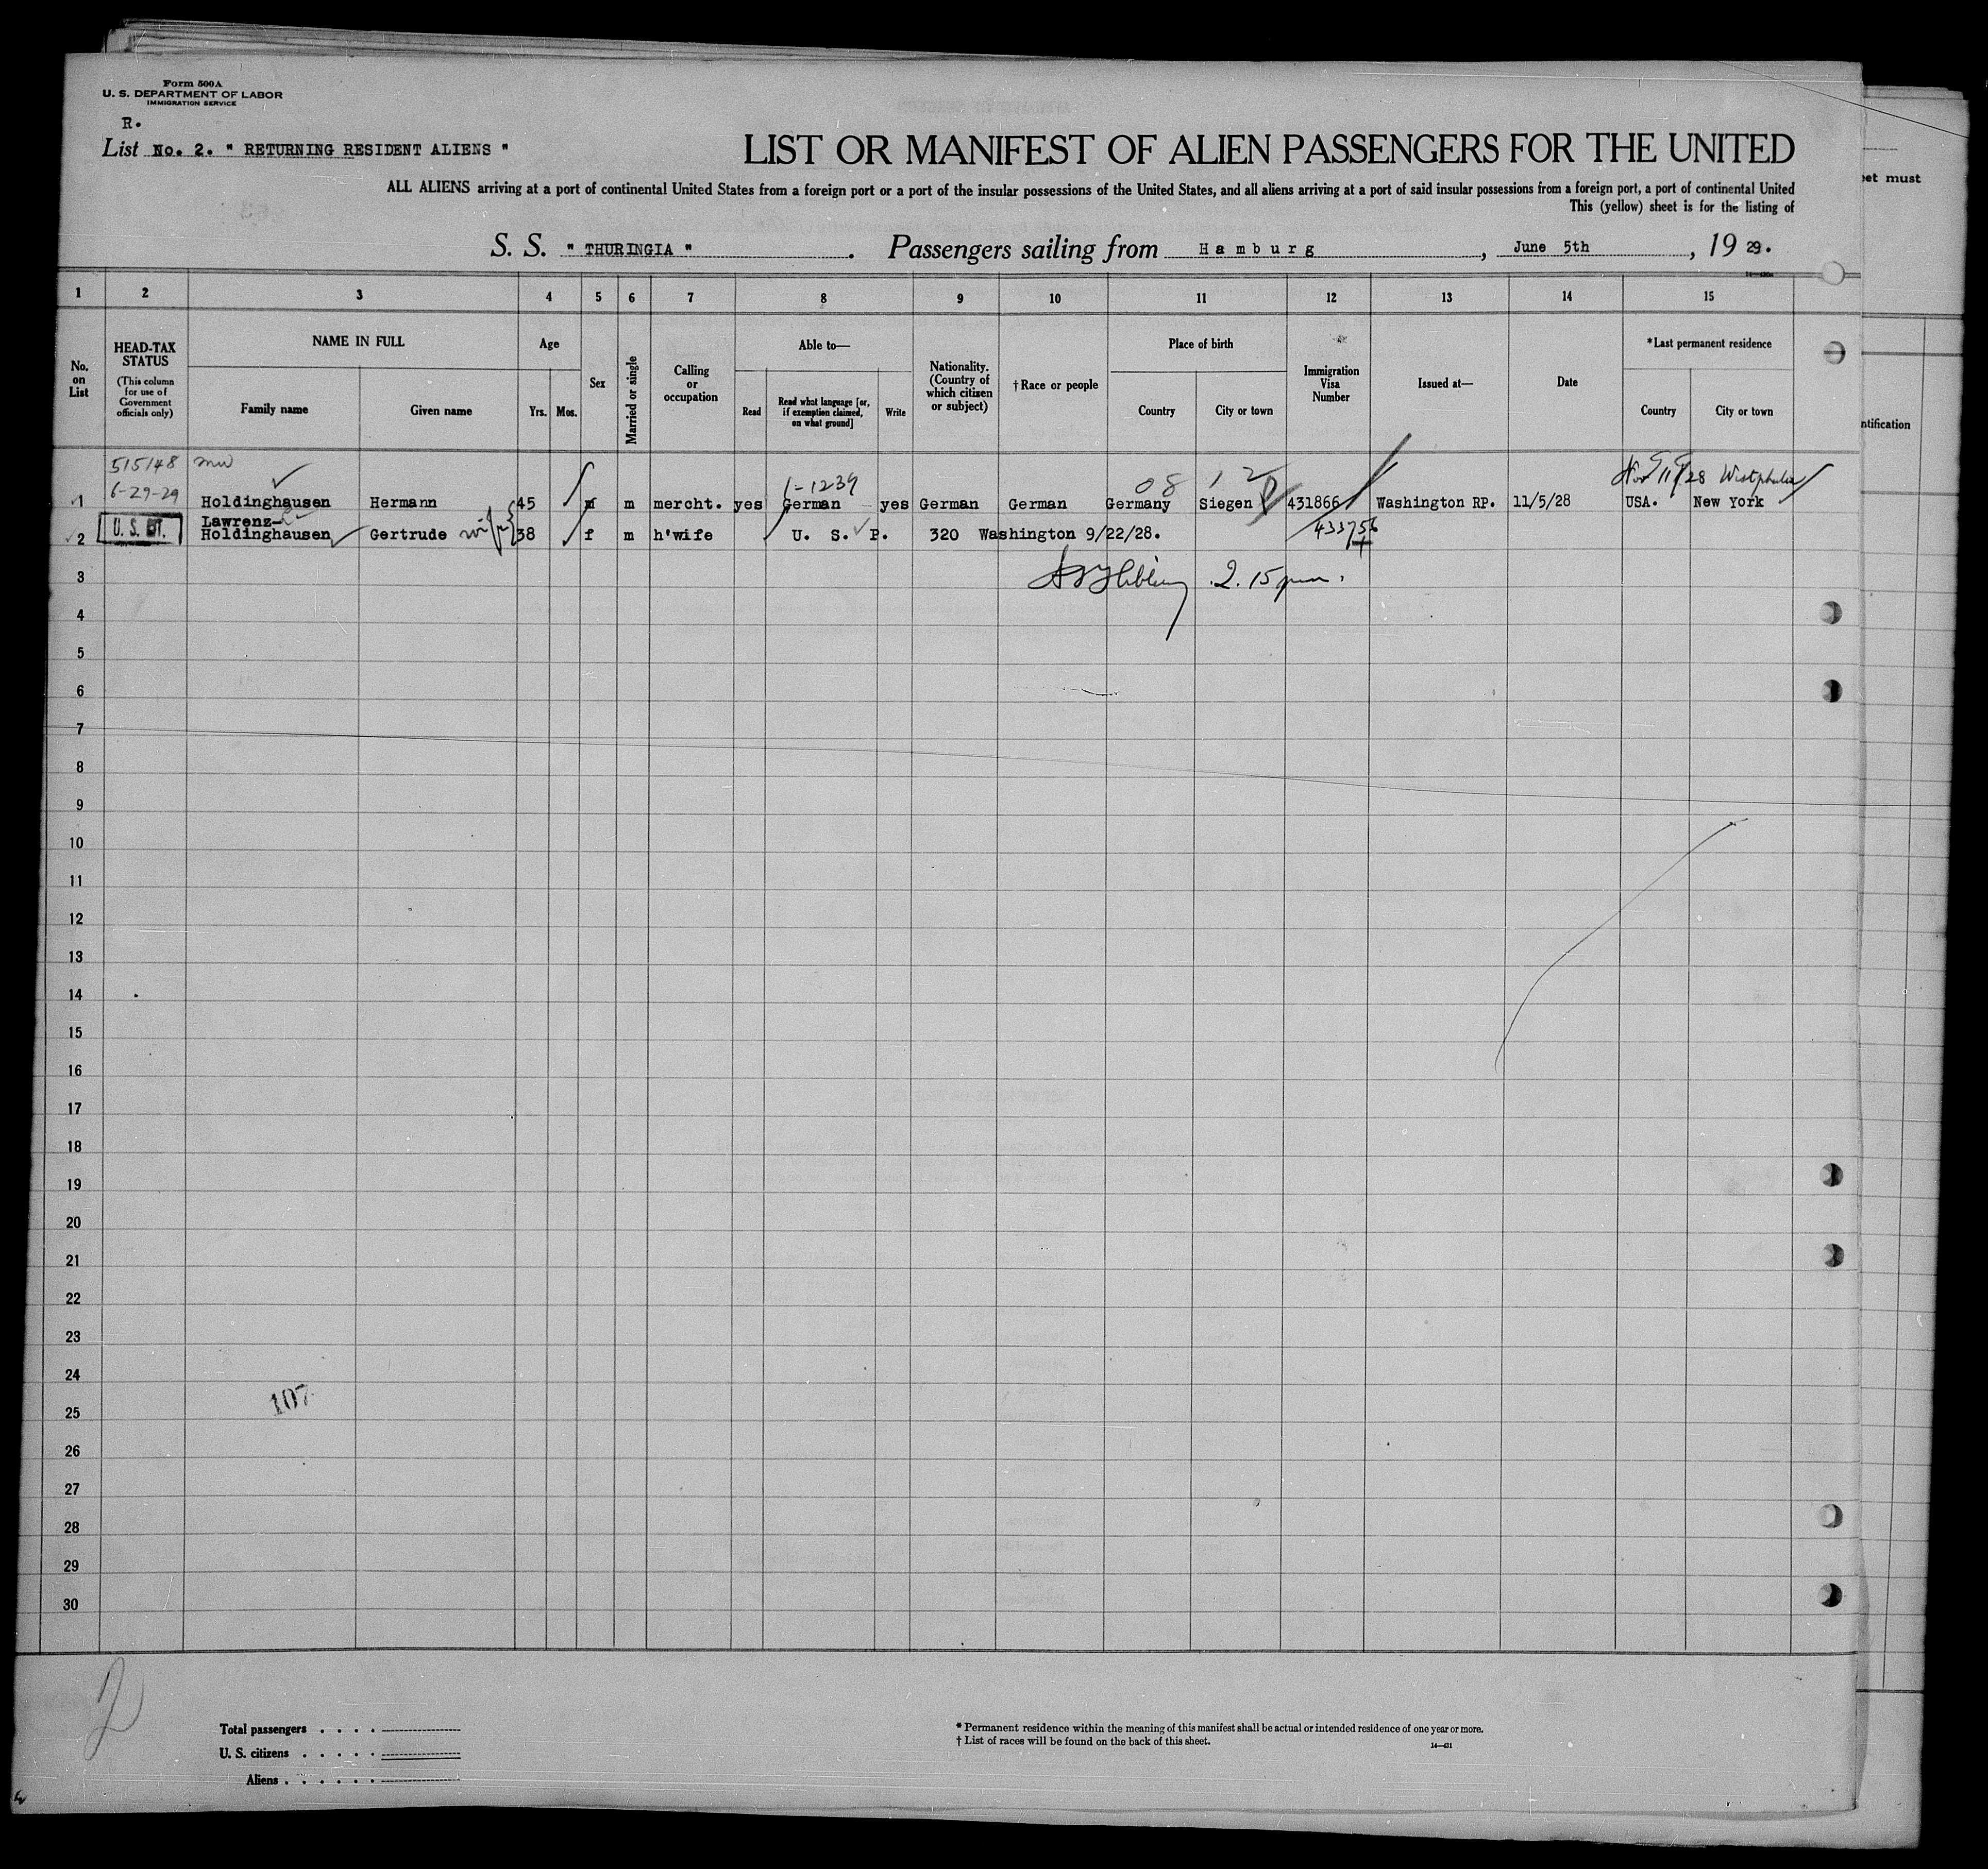 Form 500A
U. S. DEPARTMENT OF LABOR
IMMIGRATION SERVICE
R.
List No. 2. " RETURNING RESIDENT ALIENS "
LIST OR MANIFEST OF ALIEN PASSENGERS FOR THE UNITED
ALL ALIENS arriving at a port of continental United States from a foreign port or a port of the insular possessions of the United States, and all aliens arriving at a port of said insular possessions from a foreign port, a port of continental United
This (yellow) sheet is for the listing of
eet must
S. S. " THURINGIA ". Passengers sailing from Hamburg, June 5th, 19 29.
1 2 3 4 5 6 7 8 9 10 11 12 13 14 15
No. on List
HEAD-TAX STATUS
(This column for use of Government officials only)
NAME IN FULL
Family name Given name
Age
Yrs. Mos.
Sex
Married or single
Calling or occupation
Able to—
Read
Read what language [or, if exemption claimed, on what ground]
Write
Nationality. (Country of which citizen or subject)
† Race or people
Place of birth
Country City or town
Immigration Visa Number
Issued at—
Date
*Last permanent residence
Country City or town
ntification
515148
6-29-29
1-1239
08 1 2
Nov 11/28 Westphalia
1 Holdinghausen Hermann 45 m m mercht. yes German yes German German Germany Siegen 431866 Washington RP. 11/5/28 USA. New York
U. S. BT.
Lawrenz-
2 Holdinghausen Gertrude 38 f m h'wife U. S. P. 320 Washington 9/22/28. 433756
3 2.15 pm.
4
5
6
7
8
9
10
11
12
13
14
15
16
17
18
19
20
21
22
23
24
107
25
26
27
28
29
30
2
Total passengers . . . .
U. S. citizens . . . . .
Aliens . . . . . .
* Permanent residence within the meaning of this manifest shall be actual or intended residence of one year or more.
† List of races will be found on the back of this sheet.
14—431